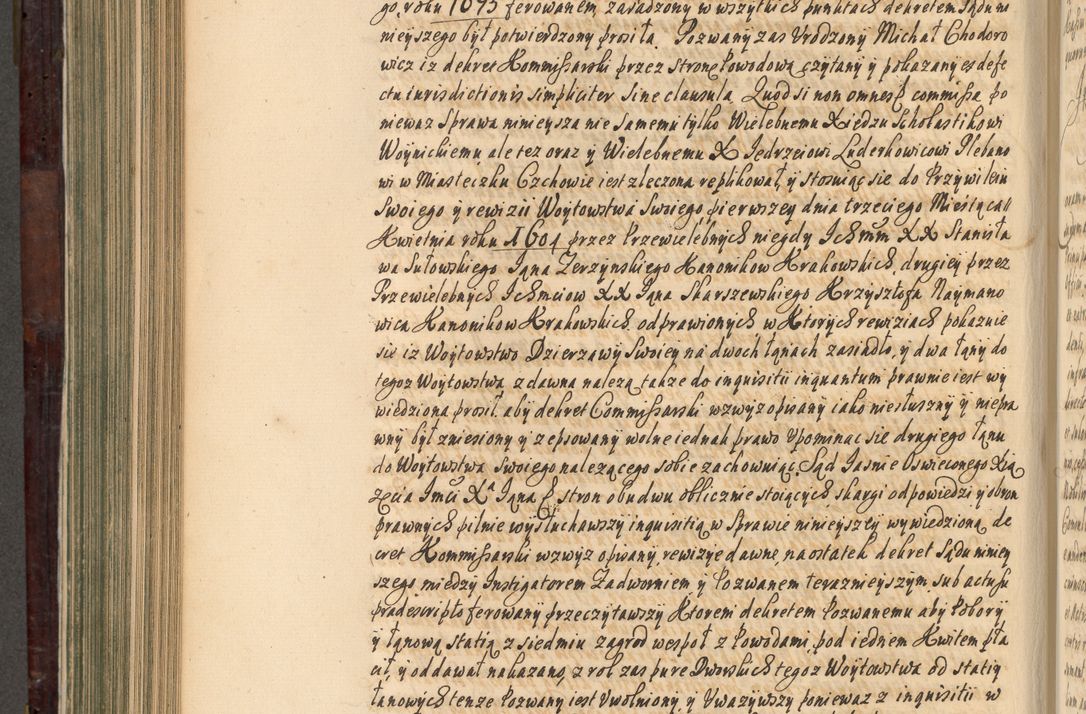 go, roku 1693 ferowanem, zasadzony w wszytkich punktach dekretem Sądu ni
nieyszego był potwierdzony prosiła. Pozwany zas Urodzony Michał Chodoro
wicz iz dekret Kommissarski przez stronę powodową czytany y pokazany es defe
ctu iurisdictionis simpliciter sine clausula, Quod si non omnes commissa po
niewaz sprawa ninieysza nie samemu tylko Wielebnemu Xiędzu Scholastikowi
Woynickiemu ale tez oraz y Wielebnemu X Jędrzeiowi Luderkowicowi Plebano
wi w Miasteczku Czchowie iest zleczona replikował, y stosuiąc sie do Przywileiu
Swoiego y rewizii Woytowstwa Swoiego pierwszey dnia trzeciego Miesiąca
Kwietnia roku 1604 przez Przewielebnych niegdy Ichmm XX Stanisła
wa Sułowskiego Jana Zerzynskiego Kanonikow Krakowskich, drugiey przez
Przewielebnych Ichmciow XX Jana Skarszewskiego Krzysztofa Naymano
wica Kanonikow Krakowskich, odprawionych, w Ktorych rewiziach pokazuie
sie iz Woytowstwo Dzierzawy Swoiey na dwoch łanach zasiadło, y dwa łany do
tegoz Woytowstwa, z dawna nalezą, takze do inquisitii inquantum prawnie iest wy
wiedziona prosił, aby dekret Commissarski wzwyz opisany iako niesłuszny y niepra
wny był zniesiony y zepsowany wolne iednak prawo upominac sie drugiego łanu
do Woytowstwa Swoiego nalezącego sobie zachowuiąc. Sąd Jasnie Oswieconego Xią
zęcia Jmći Xa Jana stron obudwu oblicznie stoiących, skargi odpowiedzi y obron
prawnych pilnie wysłuchawszy inquisitią w Sprawie ninieyszey wywiedzioną, de
cret Kommissarski wzwyz opisany, rewizye dawne, na ostatek dekret Sądu niniey
szego między Instigatorem Zadworniem y Pozwanem teraznieyszym sub actu
pradescripto ferowany przeczytawszy Ktorem dekretem Pozwanemu aby Pobory
y łanową statią z siedmiu zagrod wespoł z Powodami, pod iednem Kwitem pła
cił, y oddawał nakazano, z rol zas pure Dworskich tegoz Woytowstwa od statiy
łanowych tenze Pozwany iest Uwolniony, y Uwazywszy poniewaz z inquisitii w